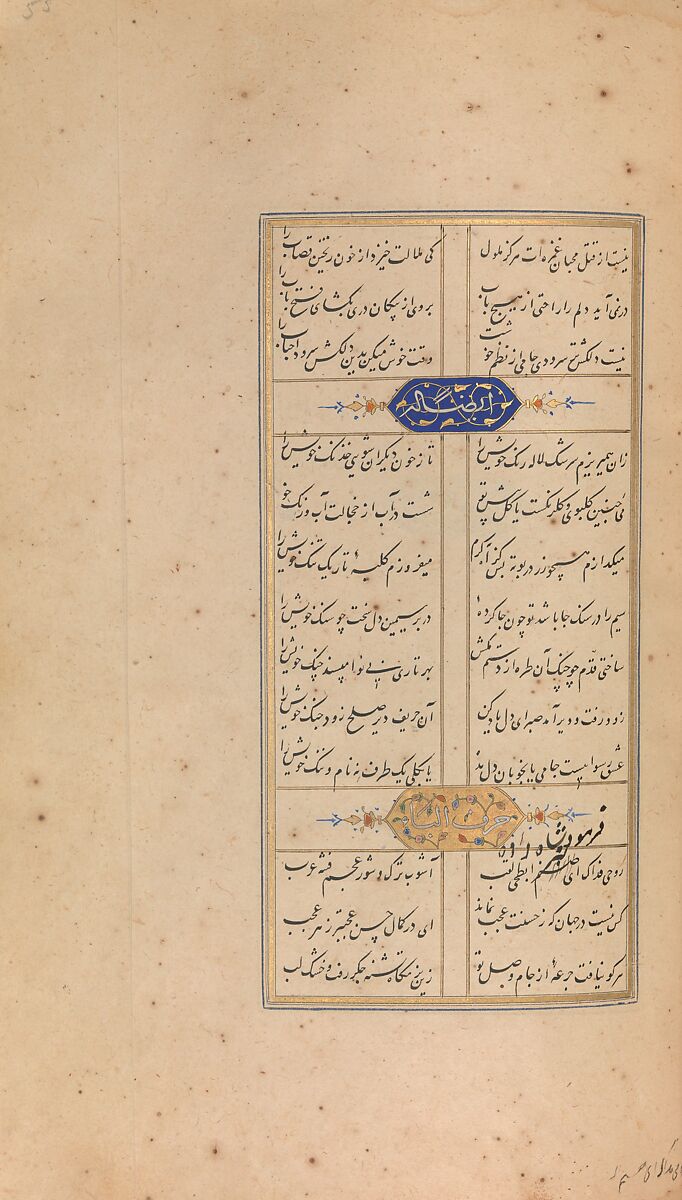 نیست از قتل محبان غمزه ات هرگز ملول کی ملالت خیزد از خون ریختن قصاب را
در نمی آید دلم را راحتی از هیچ باب بروی از پیکان دری بگشای فتح باب را
نیست دلکش تر سرودی جامی از نظم خوشت وقت خوش میکن بدین دلکش سرود احباب را
و ایضا له
زان همیریزم سرشک لاله رنگ خویش را تا ز خون دیگران شویی خدنگ خویش را
بدین گلبوی و گلرنگست یا گل پیش تو شست در آب از خجالت آب و رنگ خویش
میگدازم همچو زر در بوته بس کز آه گرم میفروزم کلبه تاریک تنگ خویش را
سیم را در سنگ جا باشد تو چون جا کرده در بر سیمین دل سخت چو سنگ خویش را
ساختی قدم چو چنگ آن طره از دستم مکش بهر تاری بی نوا مپسند چنگ خویش را
زود رفت و دیر آمد صبر ای دل یاد کن آن حریف دیر صلح زود جنگ خویش را
عشق رسواییست جامی یا بخوبان دل مده یا بکلی یک طرف نه نام و ننگ خویش را
حرف الباء
روحی فداک ای صنم ابطحی لقب آشوب ترک و شور عجم فتنه عرب
کس نیست در جهان که ز حسنت عجب نماند ای در کمال حسن عجبتر ز هر عجب
هر کو نیافت جرعه از جام وصل تو زین بزمگاه تشنه جگر رفت و خشک لب